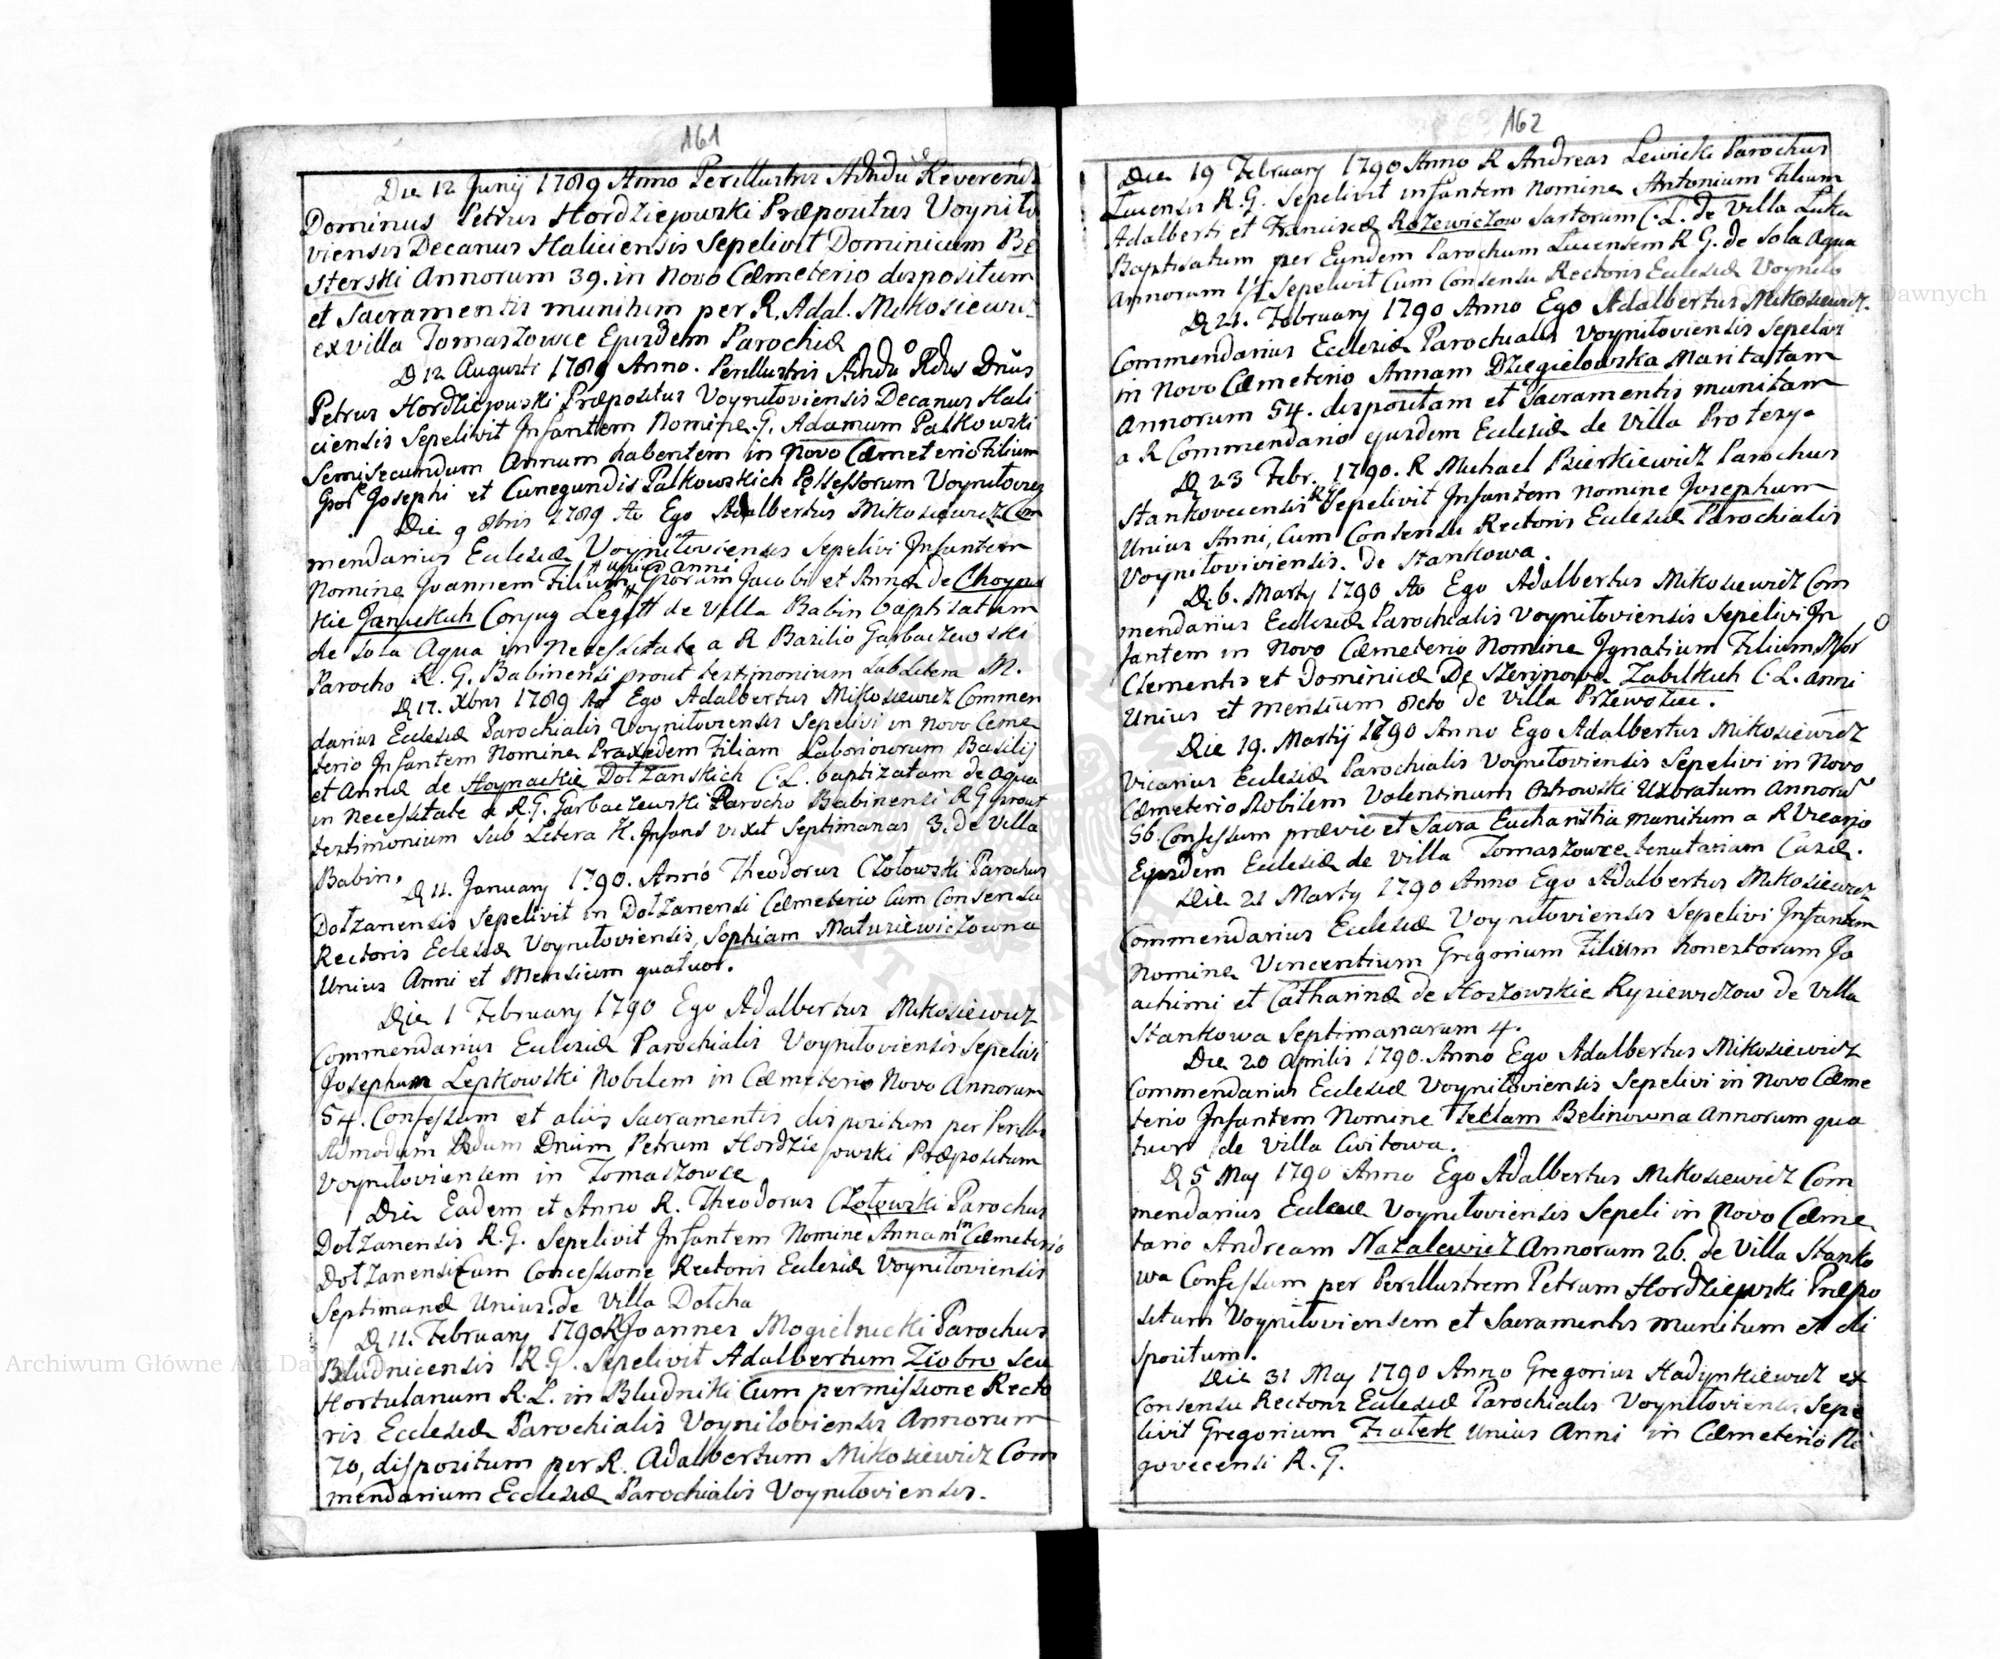 161
Die 12 Junij 1789 Anno Perillustris Admdu Reverend
Dominus Petrus Hordziejowski Præpositus Voynilo
viensis Decanus Haliciensis Sepelivit Dominicum Be
sterski Annorum 39. in Novo Cæmeterio dispositum
et Sacramentis munitum per R. Adal. Mikosiewi
ex villa Tomaszowce Ejusdem Parochiæ
D 12 Augusti 1789 Anno. Perillustris Admdu Rdus Dnus
Petrus Hordziejowski Præpositus Voyniloviensis Decanus Hali
ciensis Sepelivit Infantem Nomine G. Adamum Palkowski
Semisecundum Annum habentem in Novo Cæmeterio Filium
Josephi et Cunegundis Palkowskich Possessorum
Die 9 8bris 1789 Ao Ego Adalbertus Mikosiewicz Com
mendarius Ecclesiæ Voyniloviensis Sepelivi Infantem
unius anni
Nomine Joannem Filium Jacobi et Annæ de Choyna
kie Janickich Conjug Legitt de Villa Babin baptisatum
de sola Aqua in Necessitate a R Basilio Garbaczewski
Parocho R. G. Babinensi prout testimonium sub Litera M.
D 17. Xbris 1789 Ao Ego Adalbertus Mikosiewicz Commen
darius Ecclesiæ Parochialis Voyniloviensis Sepelivi in Novo Ceme
terio Infantem Nomine Praxedem Filiam Laboriosorum Basilij
et Annæ de Hoynackie Dolzanskich C. L. baptizatam de aqua
in Necessitate a R. G. Garbaczewski Parocho Babinensi R G prout
testimonium sub Litera K. Infans vixit Septimanas 3. de Villa
Babin.
D 11. January 1790. Anno Theodorus Czolowski Parochus
Dolzanensis Sepelivit in Dolzanensi Cæmeterio Cum Consensu
Rectoris Eclesiæ Voyniloviensis, Sophiam Matusiewiczowna
Unius Anni et Mensium quatuor.
Die 1 February 1790 Ego Adalbertus Mikosiewicz
Commendarius Ecclesiæ Parochialis Voyniloviensis Sepelivi
Josephum Lepkowski Nobilem in Cæmeterio Novo Annorum
54. Confessum et aliis Sacramentis dispositum per Perills
Admodum Rdum Dnum Petrum Hordziejowski Præpositum
Voyniloviensem in Tomaszowce
Die Eadem et Anno R. Theodorus Czolowski Parochus
Dolzanensis R. G. Sepelivit Infantem Nomine Annam in Cæmeterio
Dolzanensi Cum Concessione Rectoris Ecclesiæ Voyniloviensis
Septimanæ Unius. de Villa Dolcha
D 11. February 1790 R Joannes Mogielnicki Parochus
Bludnicensis R. G. Sepelivit Adalbertum Ziobro seu
Hortulanum R. L. in Bludniki Cum permissione Recto
ris Ecclesiæ Parochialis Voyniloviensis Annorum
70, dispositum per R. Adalbertum Mikosiewicz Com
mendarium Ecclesiæ Parochialis Voyniloviensis.
162
Die 19 February 1790 Anno R Andreas Lewicki Parochus
Lucensis R. G. Sepelivit infantem Nomine Antonium Filium
Adalberti et Franciscæ Rozewiczow Sartorum C. L. de Villa Luka
Baptisatum per Eundem Parochum Lucensem R G. de Sola Aqua
Annorum Sepelivit Cum Consensu Rectoris Eclesiæ Voynilo
D 21. February 1790 Anno Ego Adalbertus Mikosiewicz
Commendarius Ecclesiæ Parochialis Voyniloviensis Sepelivi
in Novo Cæmeterio Annam Dziegielowska Maritatam
Annorum 54. dispositam et Sacramentis munitam
a R Commendario ejusdem Ecclesiæ de Villa Protesy.
D 23 Febr. 1790. R Michael Pzierkiewicz Parochus
Stankovecensis R G Sepelivit Infantem nomine Josephum
Unius Anni, Cum Consensu Rectoris Ecclesiæ Parochialis
Voyniloviviensis. de Stankowa.
D. 6. Martij 1790 Ao Ego Adalbertus Mikosiewicz Com
mendarius Ecclesiæ Parochialis Voyniloviensis Sepelivi In
fantem in Novo Cæmeterio Nomine Ignatium Filium
Clementis et Dominicæ De Zabilkich C. L. anni
Unius et Mensium octo de Villa Przewoziec.
Die 19. Martij 1790 Anno Ego Adalbertus Mikosiewicz
Vicarius Ecclesiæ Parochialis Voyniloviensis Sepelivi in Novo
Cæmeterio Nobilem Valentinum Ostrowski Uxoratum Annorū
56. Confessum prævie et Sacra Eucharistia munitum a R Vicario
Ejusdem Ecclesiæ de Villa Tomaszowce tenutariam Casæ.
Die 21 Marty 1790 Anno Ego Adalbertus Mikosiewicz
Commendarius Ecclesiæ Voyniloviensis Sepelivi Infantem
Nomine Vincentium Gregorium Filium honestorum Jo
achimi et Catharinæ de Hoszowskie Rysiewiczow de Villa
Stankowa Septimanarum 4.
Die 20 Aprilis 1790. Anno Ego Adalbertus Mikosiewicz
Commendarius Ecclesiæ Voyniloviensis Sepelivi in Novo Cæme
terio Infantem Nomine Teclam Belinowna Annorum qua
tuor de Villa Cwitowa.
D 5 May 1790 Anno Ego Adalbertus Mikosiewicz Com
mendarius Eclesiæ Voyniloviensis Sepeli in Novo Cæme
tario Andream Nazalewicz Annorum 26. de Villa Stanko
wa Confessum per Perillustrem Petrum Hordziejewski Præpo
situm Voyniloviensem et Sacramentis munitum et di
spositum.
Die 31 May 1790 Anno Gregorius Hadynkiewicz ex
Consensu Rectoris Ecclesiæ Parochialis Voyniloviensis Sepe
livit Gregorium Fratek Unius Anni in Cæmeterio
govecensi R. G.
Archiwum Główne Akt Dawnych
Archiwum Główne Akt Dawnych